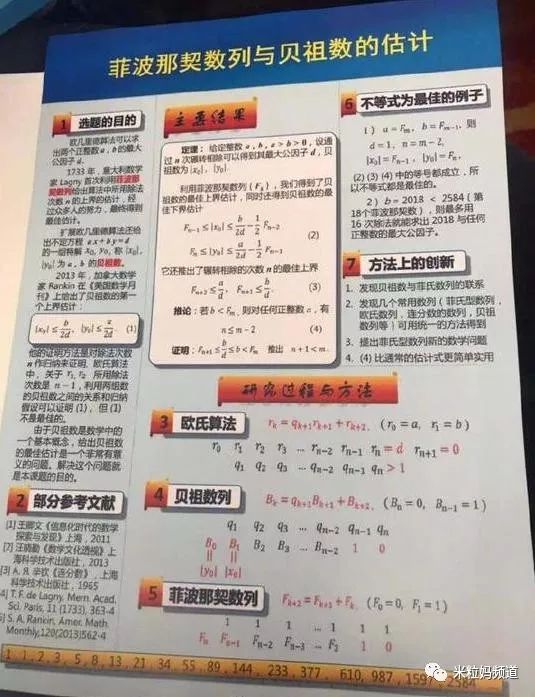 菲波那契数列与贝祖数的估计
1 选题的目的
欧几里德算法可以求
出两个正整数 a, b 的最大
公因子 d.
1733 年，意大利数学
家 Lagny 首次利用菲波那
契数列给出算法中所用除法
次数 n 的上界的估计，经
过众人的努力，最终得到
最佳估计。
扩展欧几里德算法还给
出不定方程 ax+by=d
的一组特解 x₀, y₀, 称 |x₀|,
|y₀| 为 a, b 的贝祖数。
2013 年，加拿大数学
家 Rankin 在《美国数学月
刊》上给出了贝祖数的第一
个上界估计：
|x₀| ≤ b/2d, |y₀| ≤ a/2d. (1)
他的证明方法是对除法次数
n 作归纳来证明. 欧氏算法
中，关于 r₁, r₂ 所用除法
次数是 n−1，利用两组数
的贝祖数之间的关系和归纳
假设可以证明 (1)，但 (1)
不是最佳的。
由于贝祖数是数学中的
一个基本概念，给出贝祖数
的最佳估计是一个非常有意
义的问题。解决这个问题就
是本课题的目的。
2 部分参考文献
[1] 王卿文《信息化时代的数学
探索与发现》上海，2011
王晓勤《数学文化透视》上
海科学技术出版社，2013
[3] А. Я. 辛钦《连分数》，上海
科学技术出版社，1965
4] T. F. de Lagny, Mem. Acad.
Sci. Paris, 11 (1733), 363-4
5] S. A. Rankin, Amer. Math.
Monthly,120(2013)562-4
主要结果
定理：给定整数 a, b, a > b > 0，设通
过 n 次辗转相除可以得到其最大公因子 d，贝
祖数为 |x₀|, |y₀|.
利用菲波那契数列 {Fₖ}，我们得到了贝
祖数的最佳上界估计，同时还得到贝祖数的最
佳下界估计
Fₙ₋₁ ≤ |x₀| ≤ b/2d − 1/2 Fₙ₋₂
(2)
Fₙ ≤ |y₀| ≤ a/2d − 1/2 Fₙ₋₁
它还推出了辗转相除的次数 n 的最佳上界
Fₙ₊₂ ≤ a/d, Fₙ₊₁ ≤ b/d. (3)
推论：若 b < Fₘ, 则对任何正整数 a，有
n ≤ m − 2 (4)
证明：Fₙ₊₁ ≤ b/d ≤ b < Fₘ 推出 n+1 < m.
研究过程与方法
3 欧氏算法 rₖ = qₖ₊₁rₖ₊₁ + rₖ₊₂, (r₀ = a, r₁ = b)
r₀ r₁ r₂ r₃ ... rₙ₋₂ rₙ₋₁ rₙ = d rₙ₊₁ = 0
q₁ q₂ q₃ ... qₙ₋₂ qₙ₋₁ qₙ > 1
4 贝祖数列 Bₖ = qₖ₊₁Bₖ₊₁ + Bₖ₊₂, (Bₙ = 0, Bₙ₋₁ = 1)
q₁ q₂ q₃ ... qₙ₋₂ qₙ₋₁ qₙ
B₀ B₁ B₂ B₃ ... Bₙ₋₂ 1 0
|| ||
|y₀| |x₀|
5 菲波那契数列 Fₖ₊₂ = Fₖ₊₁ + Fₖ, (F₀ = 0, F₁ = 1)
1 1 1 ... 1 1 1
Fₙ Fₙ₋₁ Fₙ₋₂ Fₙ₋₃ ... F₂ 1 0
6 不等式为最佳的例子
1) a = Fₘ, b = Fₘ₋₁, 则
d = 1, n = m − 2,
|x₀| = Fₙ₋₁, |y₀| = Fₙ.
(2) (3) (4) 中的等号都成立，所
以不等式都是最佳的。
2) b = 2018 < 2584 (第
18个菲波那契数)，则最多用
16 次除法就能求出 2018 与任何
正整数的最大公因子。
7 方法上的创新
1. 发现贝祖数与菲氏数列的联系
2. 发现几个常用数列（菲氏型数列，
欧氏数列，连分数的数列，贝祖
数列等）可用统一的方法得到
3. 提出菲氏型数列新的数学问题
4. (4) 比通常的估计式更简单实用
1, 1, 2, 3, 5, 8, 13, 21, 34, 55, 89, 144, 233, 377, 610, 987, 1597, 2584
米粒妈频道